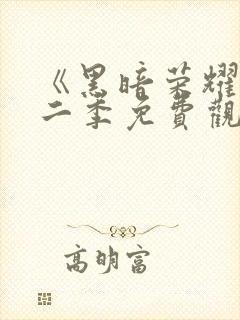 《黑暗荣耀
二季免費觀
高明富